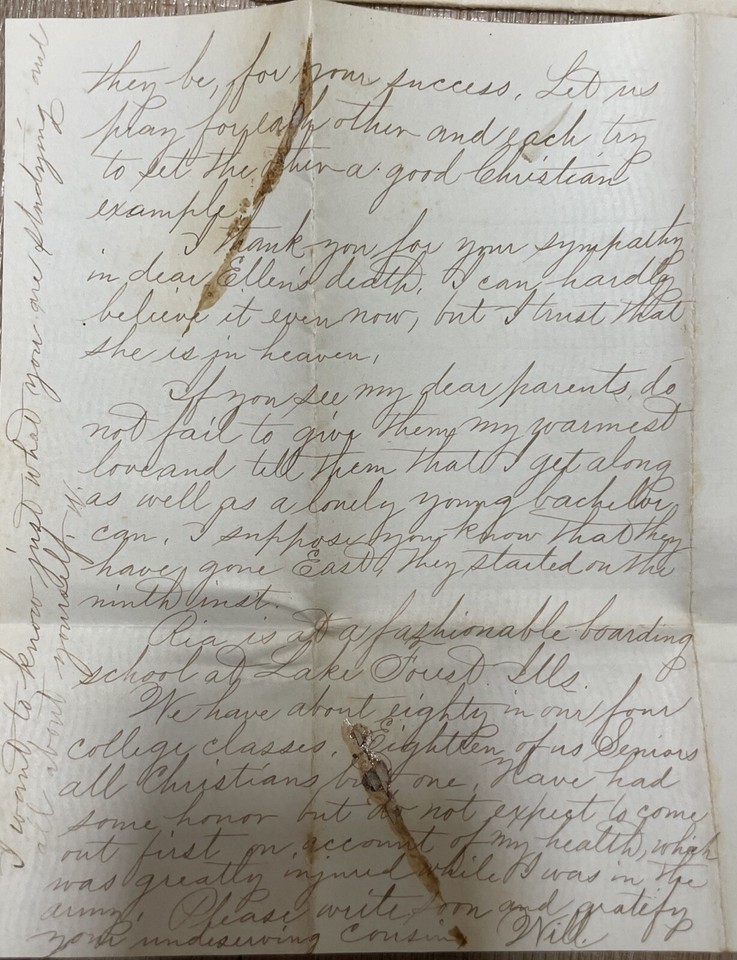 they be, for your success. Let us
pray for each other and each try
to set the other a good Christian
example.
I thank you for your sympathy
in dear Ellen's death. I can hardly
believe it even now, but I trust that
she is in heaven.
If you see my dear parents, do
not fail to give them my warmest
love and tell them that I get along
as well as a lonely young bachelor
can. I suppose you know that they
have gone East, they started on the
ninth inst.
Ria is at a fashionable boarding
school at Lake Forest. Ills.
We have about eighty in our four
college classes. Eighteen of us Seniors
all Christians but one. Have had
some honor but do not expect to come
out first on account of my health, which
was greatly injured while I was in the
army. Please write soon and gratify
your undeserving cousin Will.
I want to know just what you are studying and
all about yourself. W.